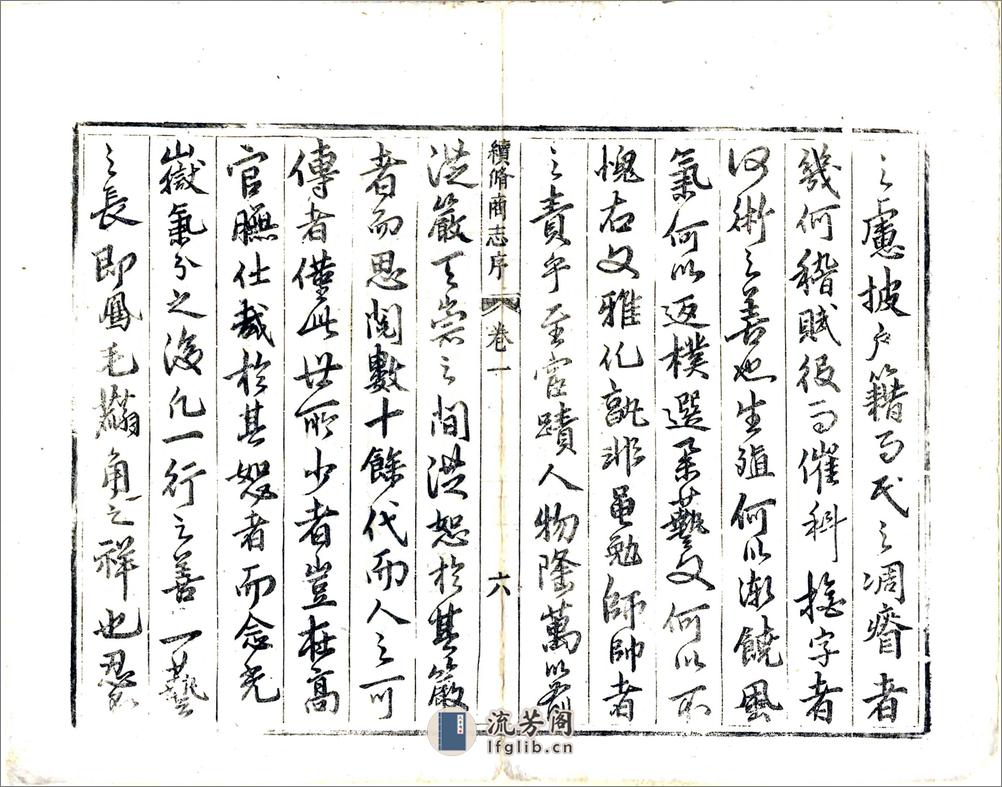 之慮披户籍而民之凋瘠者
幾何稽賦役而催科撫字者
何術之善也生殖何以漸饒風
氣何以返樸選柔藝文何以不
愧右文雅化孰非黽勉師帥者
之責乎至宦蹟人物隆萬以
續脩商志序 卷一 六
從嚴天崇之間從恕於其嚴
者而思閱數十餘代而人之可
傳者僅此世所少者豈在高
官膴仕哉於其恕者而念光
嶽氣分之後凡一行之善一藝
之長即鳳毛麟角之祥也忍
流芳阁
lfglib.cn